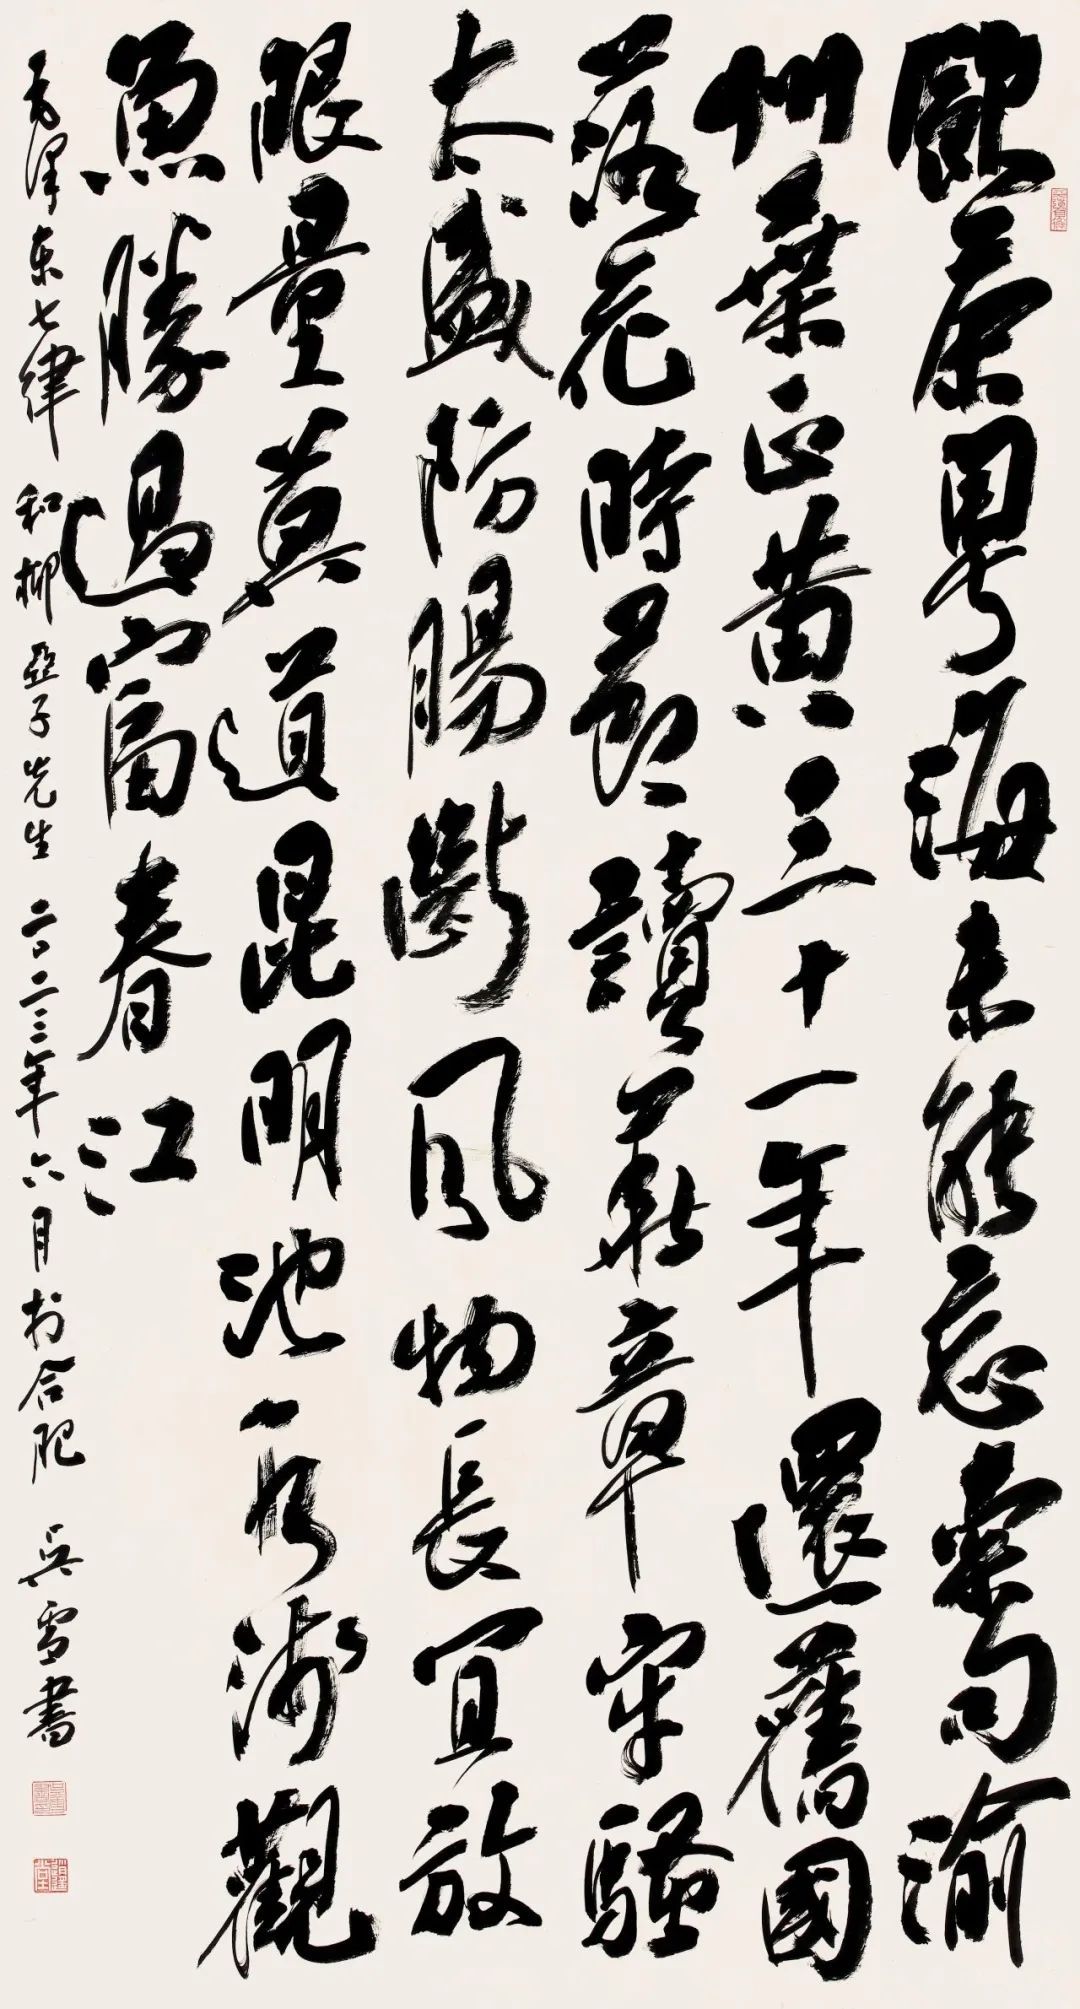 飲茶粵海未能忘索句渝
州葉正黃三十一年還舊國
落花時節讀華章牢騷
太盛防腸斷風物長宜放
眼量莫道昆明池水淺觀
魚勝過富春江
毛澤東七律 和柳亞子先生 二〇二三年六月於合肥 吳雪書